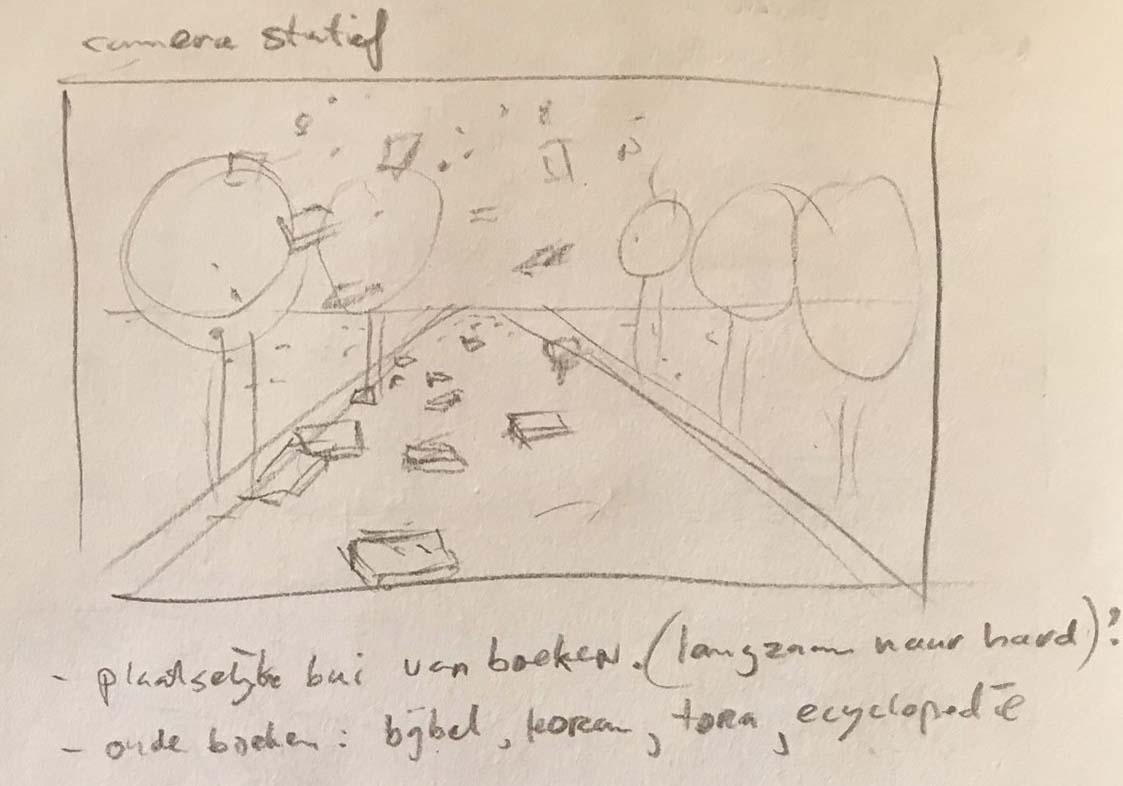 camera statief
- plaatselijke bui van boeken. (langzaam naar hard)?
- oude boeken: bijbel, koran, tora, ecyclopedie